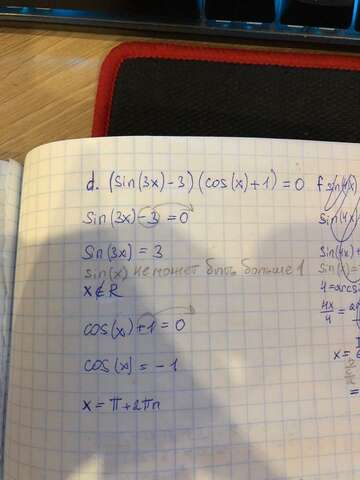 d. (sin(3x)-3)(cos(x)+1)=0
sin(3x)-3=0
sin(3x)=3
sin(x) не может быть больше 1
x∉R
cos(x)+1=0
cos(x)=-1
x=π+2πn
f sin(4x)
sin(4x)
sin(4x)+
sin(x)=
4=arcs
4x/4=
x=
=